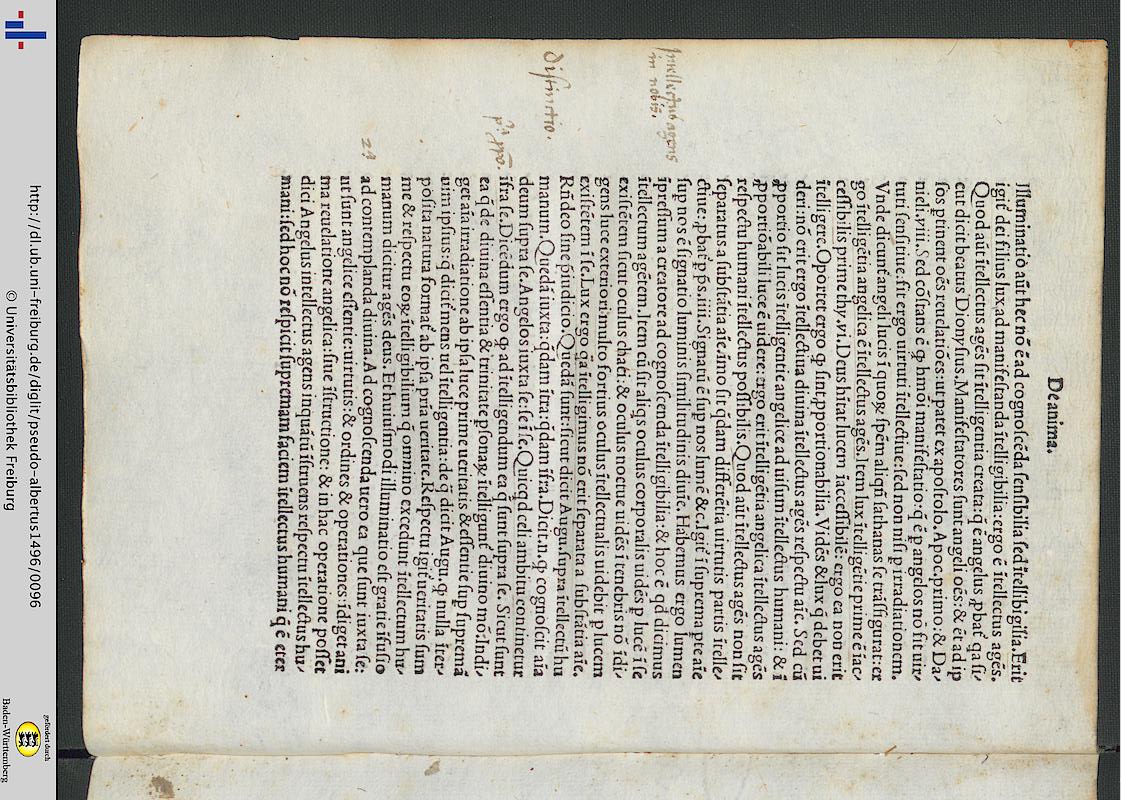 De anima.
Illuminatio aūt hec nō ē ad cognoscēda sensibilia sed ītellibigilia. Erit
igit̄ dei filius lux, ad manifestanda ītelligibilia: ergo ē ītellectus agēs.
Quod aūt ītellectus agēs sit ītelligentia creata: q̄ ē angelus ,pbat̄ qa si/
cut dicit beatus Dionysius. Manifestatores sunt angeli oēs: & ēt ad ip
sos ptinent oēs reuelatiōes: ut patet ex apostolo. Apoc. primo: & Da/
niel. viii. Sed cōstans ē q̄ hmōi manifestatio: q̄ ē p angelos nō fit uir/
tuti sensitiue. fit ergo uirtuti ītellectiue: sed non nisi p irradiationem.
Vnde dicunt̄ angeli lucis ī quoꝝ spēm aliqñ sathanas se trāsfigurat: er
go ītelligētia angelica ē ītellectus agēs. Item lux ītelligētie prime ē īac/
cessibilis prime thy. vi. Deus hītat lucem īaccessibilē: ergo ea non erit
ītelligere. Oportet ergo q̄ sint ,pportionabilia. Vidēs & lux q̄ debet ui
deri: nō erit ergo ītellectiua diuina ītellectus agēs respectu aīe. Sed cū
,pportio sit lucis ītelligentie angelice ad uisum ītellectus humani: & ī
,pportiōabili luce ē uidere: ergo erit ītelligētia angelica ītellectus agēs
respectu humani ītellectus possibilis. Quod aūt ītellectus agēs non sit
separatus a substātia aīe. īmo sit q̄dam differētia uirtutis partis ītelle/
ctiue: ,pbat̄ p ps. iiii. Signatū ē sup nos lumē &c. Igit̄ ī suprema pte aīe
sup nos ē signatio luminis similitudinis diuīe. Habemus ergo lumen
īpressum a creatore ad cognoscenda ītelligibilia: & hoc ē qd dicimus
ītellectum agētem. Item cū sit aliqs oculus corporalis uidēs p lucē ī se
existētem sicut oculus chati: & oculus noctue uidēs ī tenebris nō īdi/
gens luce exteriori: multo fortius oculus ītellectualis uidebit p lucem
existētem ī se. Lux ergo qa ītelligimus nō erit separata a substātia aīe.
Rñdeo sine p̄iudicio. Quedā sunt: sicut dicit Augu. supra ītellectū hu
manum. Quedā iuxta: q̄dam ītra: q̄dam īfra. Dicit. n. q̄ cognoscit aīa
deum supra se. Angelos iuxta se: se ī se. Quicqd celi ambitu continetur
īfra se. Dicēdum ergo q̄ ad ītelligendum ea q̄ sunt supra se. Sicut sunt
ea q̄ de diuina essentia & trinitate psonaꝝ ītelligunt̄ diuino mō: Indi/
get aīa irradiatione ab ipsa luce prime ueritatis & essentie sup supremā
uim ipsius: q̄ dicit̄ mens uel ītelligentia: de q̄ dicit Augu. q̄ nulla īter/
posita natura format̄ ab ipsa pria ueritate. Respectu igit̄ ueritatis sum
me & respectu eoꝝ ītelligibilium q̄ omnino excedunt ītellectum hu/
manum dicitur agēs deus. Et huiusmodi illuminatio est gratie īfusio
ad contemplanda diuina. Ad cognoscenda uero ea que sunt iuxta se:
ut sunt angelice essentie: uirtutis: & ordines & operationes: idiget ani
ma reuelatione angelica: siue īstructione: & in hac operatione posset
dici Angelus intellectus agens inquātū īstruens respectu ītellectus hu/
mani: sed hoc nō respicit supremam faciem ītellectus humani q̄ ē eter
Intellectus agens
in nobis.
distinctio.
http://dl.ub.uni-freiburg.de/diglit/pseudo-albertus1496/0096
© Universitätsbibliothek Freiburg
gefördert durch
Baden-Württemberg